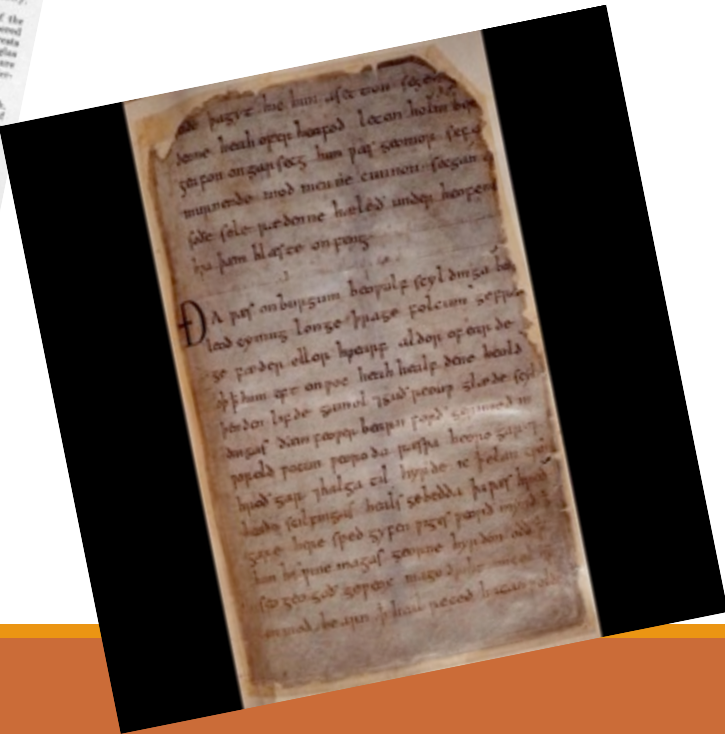 the
are
þagyt hie him asetton segen
denne heah ofer heafod leton holm ber
geafon ongarsecg him ƿæs geomor sefa
murnende mod men ne cunnon secgan
soðe sele rædenne hæleð under heofenum
hƿa þæm hlæste onfeng
ÐA ƿæs onburgum beoƿulf scyldinga
leod cyning longe þrage folcum gefræ
ge fæder ellor hƿearf aldor of earde
oþ ꝥ him eft onƿoc heah healf dene heold
þenden lifde gamol ⁊ guð reouƿ glæde scyl
dingas ðæm feoƿer bearn forð gerimed in
ƿorold ƿocun ƿeoroda ræsƿa heoro gar ⁊
hroð gar ⁊ halga til hyrde ic ꝥ elan cƿen
heaðo scilfingas heals gebedda þa ƿæs hroð
gare here sped gyfen ƿiges ƿeorð mynd
him his ƿine magas georne hyrdon oðð
seo geogoð geƿeox mago driht micel
onmod bearn ꝥ heal reced hatan ƿolde